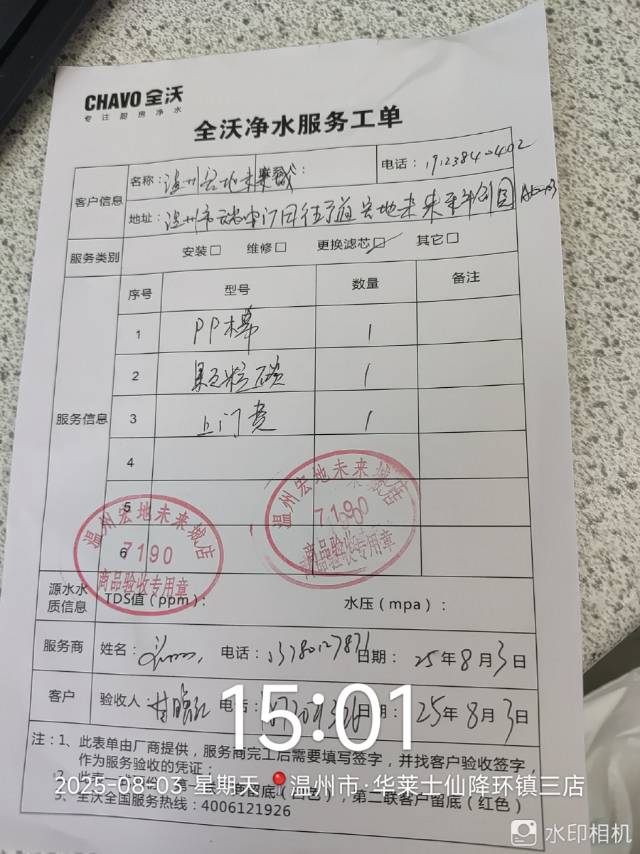 CHAVO 全沃
专注厨房净水
全沃净水服务工单
客户信息
名称：温州宏地未来城
电话：
地址：温州市瑞安 宏地未来
服务类别 安装□ 维修□ 更换滤芯☑ 其它□
服务信息
序号 型号 数量 备注
1 PP棉 1
2 颗粒碳 1
3 上门费 1
4
5
6
温州宏地未来城店
7190
商品验收专用章
温州宏地未来城店
7190
商品验收专用章
源水水质信息 TDS值（ppm）： 水压（mpa）：
服务商 姓名： 电话： 日期：25年8月3日
客户 验收人：甘晓红 电话： 日期：25年8月3日
15:01
注：1、此表单由厂商提供，服务商完工后需要填写签字，并找客户验收签字，
作为服务验收的凭证；
2、此表一 底（白色），第二联客户留底（红色）
3、全沃全国服务热线：4006121926
2025-08-03 星期天 温州市·华莱士仙降环镇三店
水印相机